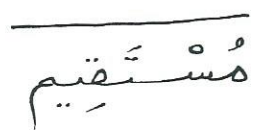 مُسْتَقِيم